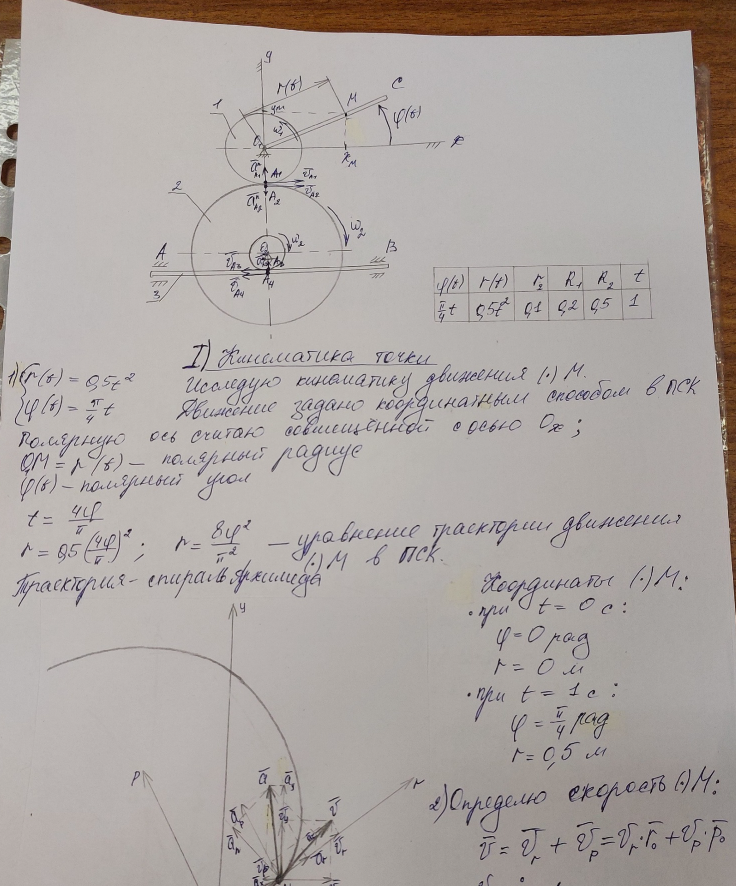 y
r(t)
C
M
φ(t)
1
yм
ω₁
O₁
x
xм
A₁
A₂
v̄A₁
v̄A₂
āⁿA₁
āⁿA₂
2
ω₂
A
B
ω₂
v̄A₃
v̄A₄
A₄
3
φ(t) r(t) r₂ R₁ R₂ t
π/4 t 0,5t² 0,1 0,2 0,5 1
I) Кинематика точки
1) { r(t) = 0,5t²
φ(t) = π/4 t
Исследую кинематику движения (·) M.
Движение задано координатным способом в ПСК
Полярную ось считаю совмещённой с осью Ox;
O₁M = r(t) – полярный радиус
φ(t) – полярный угол
t = 4φ/π
r = 0,5(4φ/π)²; r = 8φ²/π² – уравнение траектории движения
(·) M в ПСК.
Траектория – спираль Архимеда
Координаты (·) M:
• при t = 0 с:
φ = 0 рад
r = 0 м
• при t = 1 с:
φ = π/4 рад
r = 0,5 м
y
p
r
ā
āy
v̄
v̄y
v̄r
2) Определю скорость (·) M:
v̄ = v̄r + v̄p = vr · r̄₀ + vp · p̄₀